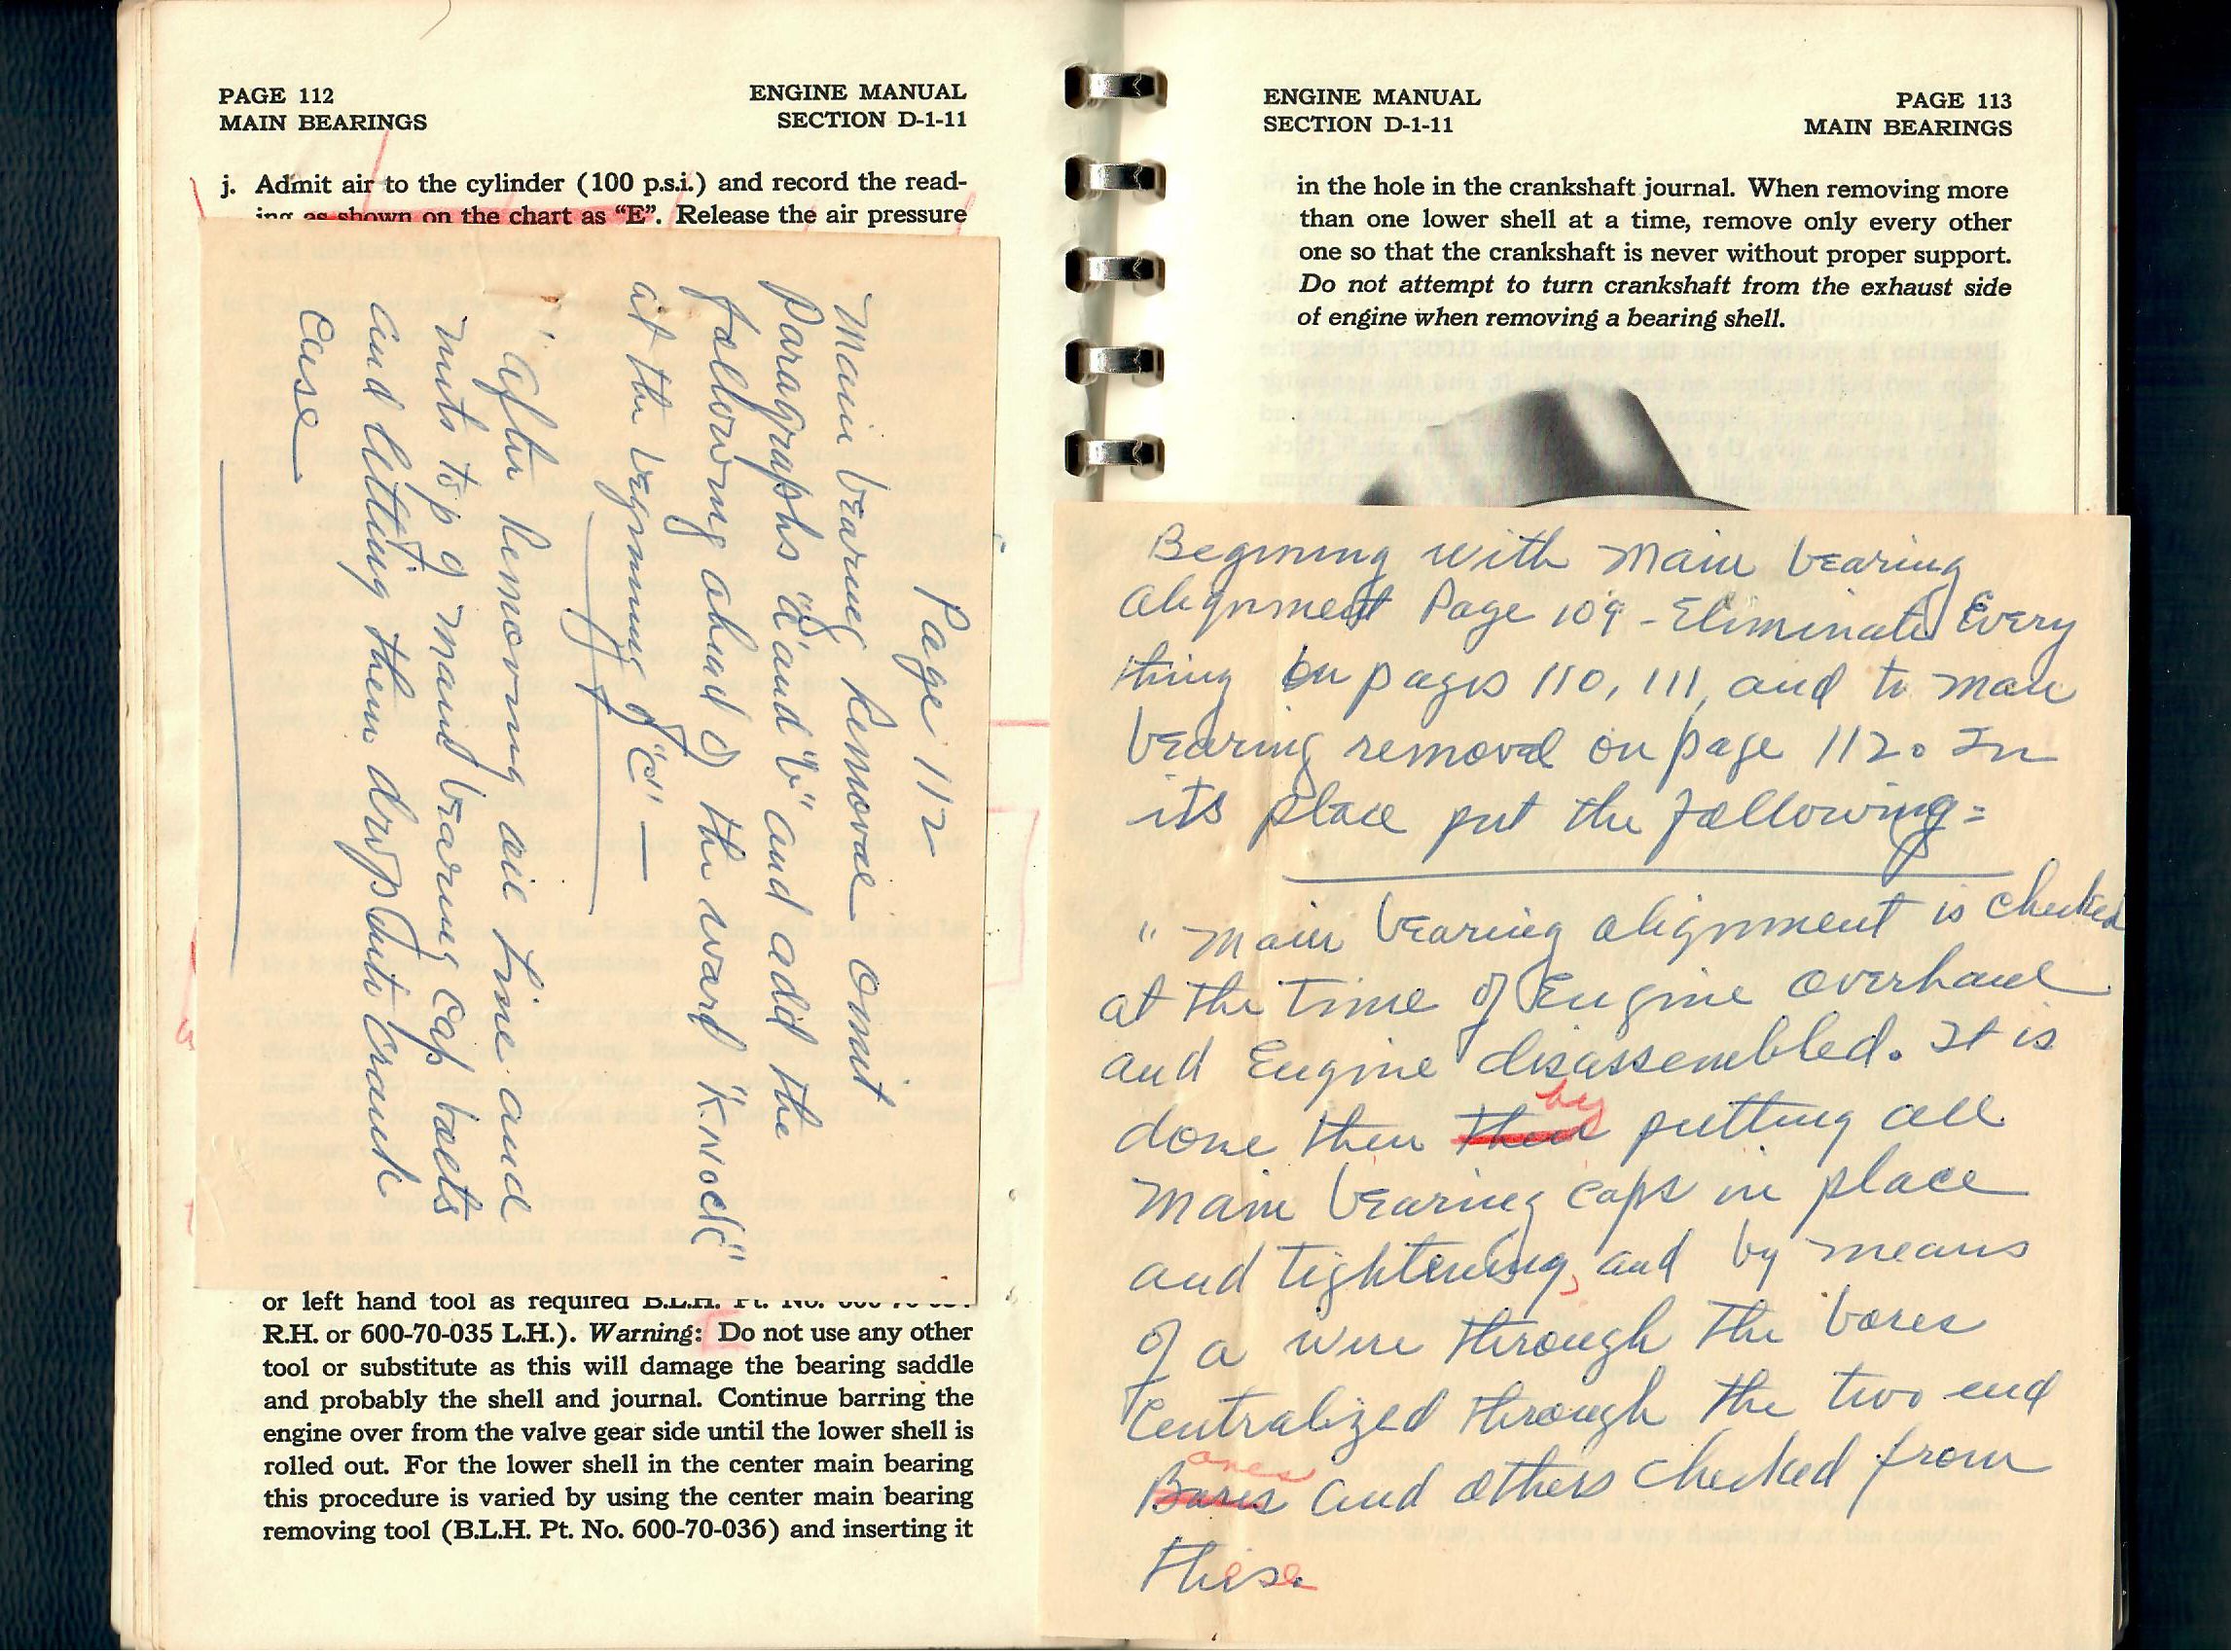 PAGE 112
MAIN BEARINGS
ENGINE MANUAL
SECTION D-1-11
j. Admit air to the cylinder (100 p.s.i.) and record the read-
ing as shown on the chart as “E”. Release the air pressure
Page 112
Main bearing Removal omit
Paragraphs "a" and "b" and add the
following ahead of the word "Knock"
at the beginning of "c" —
"After Removing oil line and
nuts top of main bearing cap bolts
and letting them drop into crank
case
or left hand tool as required B.L.H. Pt. No.
R.H. or 600-70-035 L.H.). Warning: Do not use any other
tool or substitute as this will damage the bearing saddle
and probably the shell and journal. Continue barring the
engine over from the valve gear side until the lower shell is
rolled out. For the lower shell in the center main bearing
this procedure is varied by using the center main bearing
removing tool (B.L.H. Pt. No. 600-70-036) and inserting it
ENGINE MANUAL
SECTION D-1-11
PAGE 113
MAIN BEARINGS
in the hole in the crankshaft journal. When removing more
than one lower shell at a time, remove only every other
one so that the crankshaft is never without proper support.
Do not attempt to turn crankshaft from the exhaust side
of engine when removing a bearing shell.
Begining with Main bearing
alignment Page 109 - Eliminate Every
thing on pages 110, 111, and to main
bearing removal on page 112. In
its place put the following=
"Main bearing alignment is checked
at the time of Engine overhaul
and Engine disassembled. It is
done then by putting all
main bearing caps in place
and tightening, and by means
of a wire through the bores
Centralized through the two end
ones and others checked from
these.